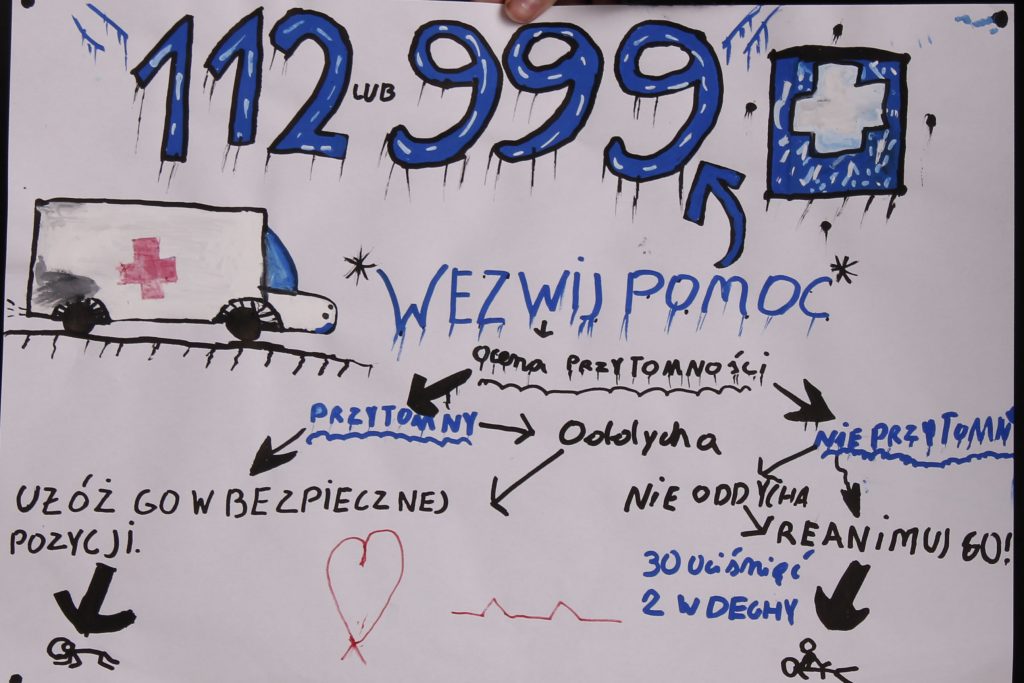 112 LUB 999
WEZWIJ POMOC
Ocena PRZYTOMNOŚCi
PRZYTOMNY
Oddycha
NiEPRZYTOMN
UZÓŻ GO W BEZPIECZNEJ
POZYCJI.
NiE ODDYCHA
REANiMUJ GO!
30 Uciśnięć
2 WDECHY